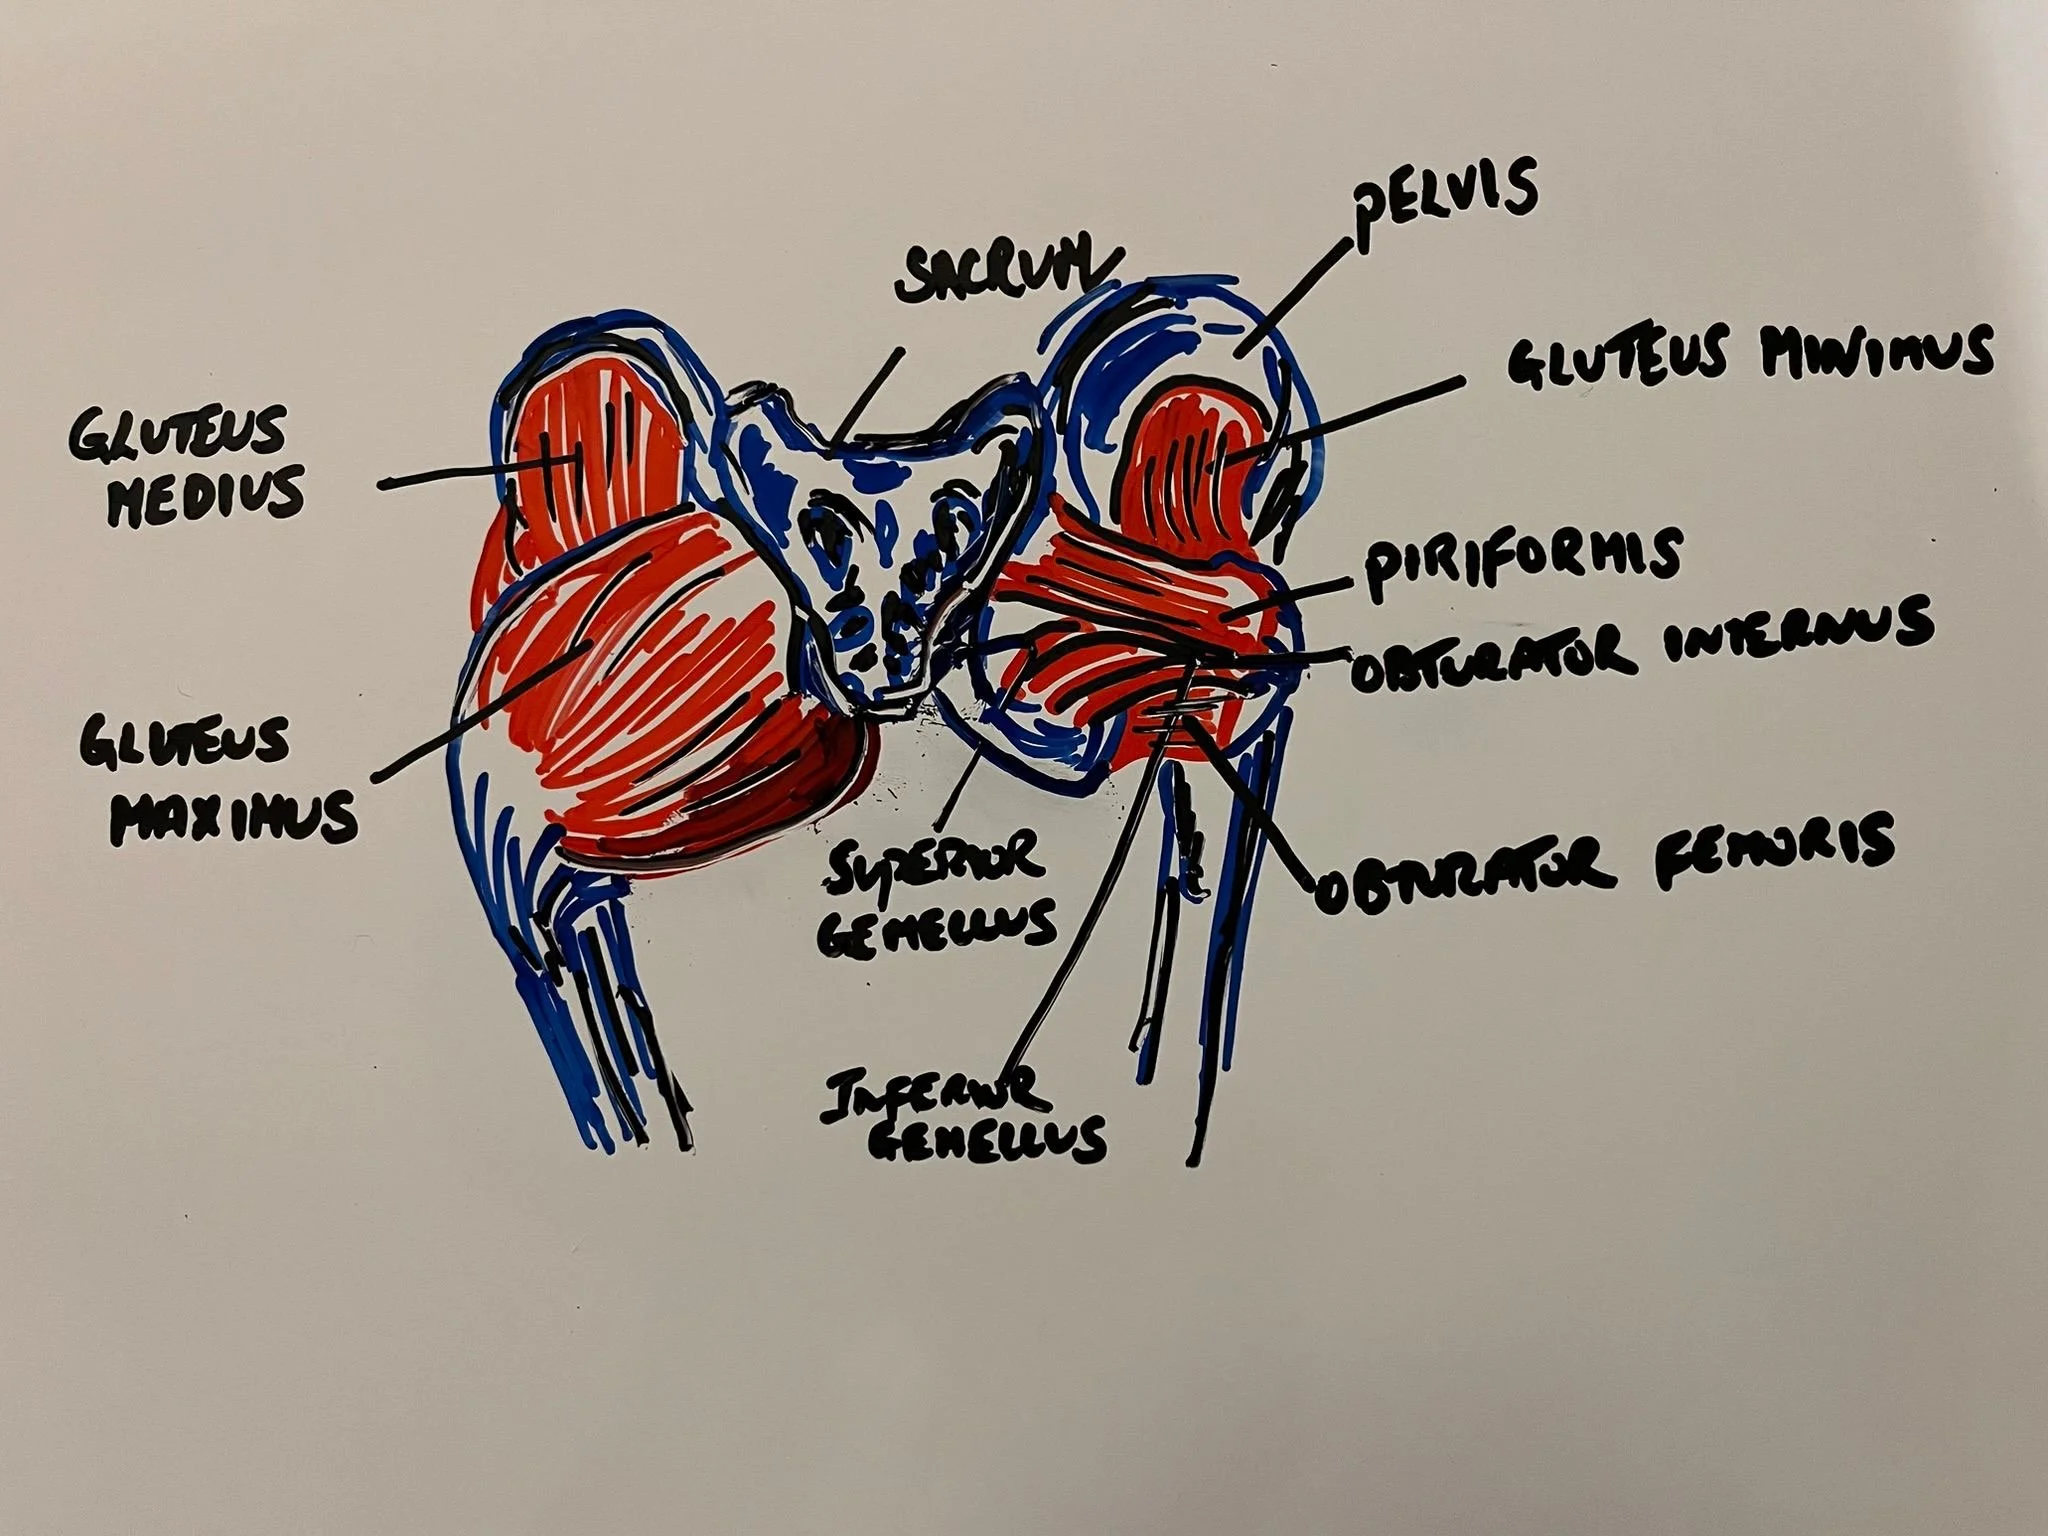 PELVIS
SACRUM
GLUTEUS MINIMUS
GLUTEUS
MEDIUS
PIRIFORMIS
OBTURATOR INTERNUS
GLUTEUS
MAXIMUS
SUPERIOR
GEMELLUS
OBTURATOR FEMORIS
INFERIOR
GEMELLUS